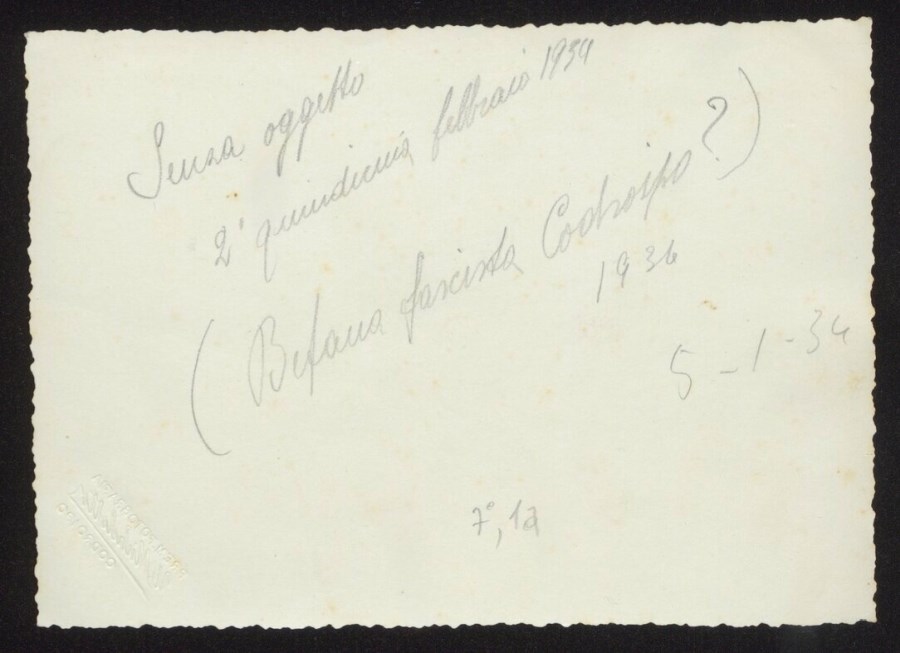 Senza oggetto
2ª quindicina febbraio 1934
(Befana fascista Codroipo?)
1936
5-1-34
7°, 1a